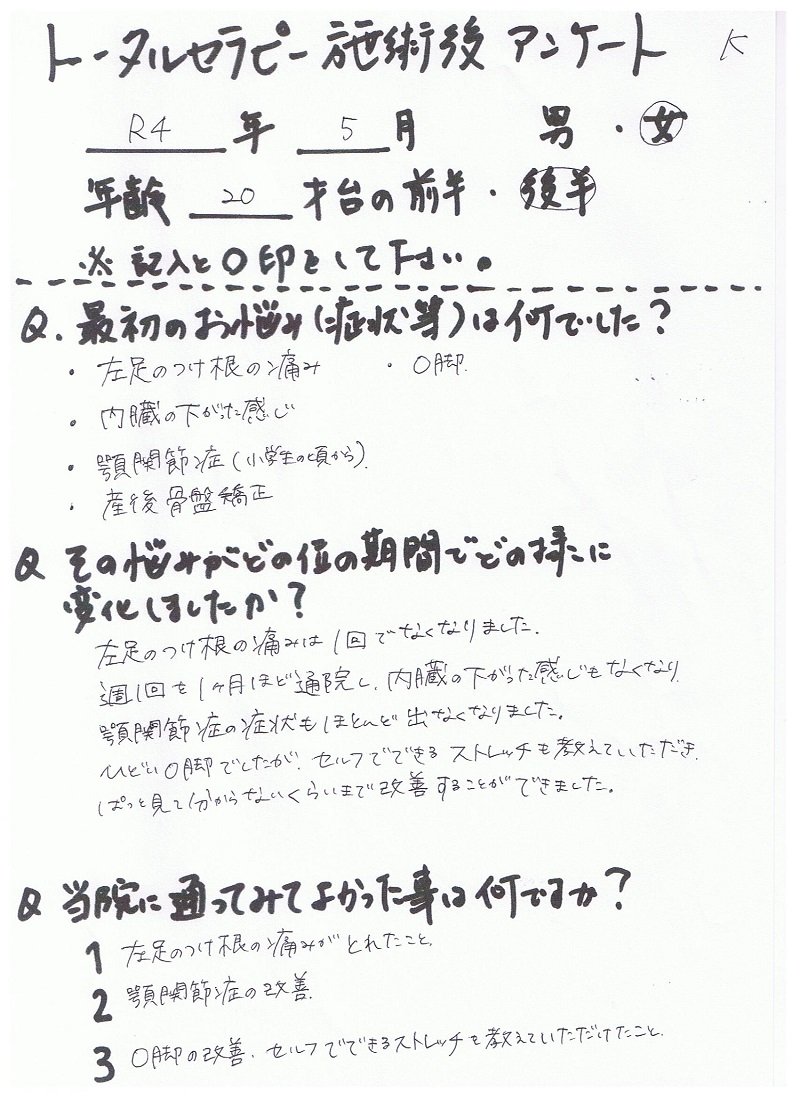 トータルセラピー施術後 アンケート K
R4 年 5 月 男 ・ 女
年齢 20 才台の前半 ・ 後半
※ 記入と〇印をして下さい。
Q. 最初のお悩み(症状等)は何でした?
・ 左足のつけ根の痛み ・ O脚.
・ 内臓の下がった感じ
・ 顎関節症(小学生の頃から).
・ 産後骨盤矯正
Q その悩みがどの位の期間でどの様に
変化しましたか?
左足のつけ根の痛みは1回でなくなりました.
週1回を1ヶ月ほど通院し、内臓の下がった感じもなくなり、
顎関節症の症状もほとんど出なくなりました。
ひどいO脚でしたが、セルフでできるストレッチも教えていただき、
ぱっと見て分からないくらいまで改善することができました。
Q 当院に通ってみてよかった事は何ですか?
1 左足のつけ根の痛みがとれたこと.
2 顎関節症の改善.
3 O脚の改善. セルフでできるストレッチを教えていただけたこと.